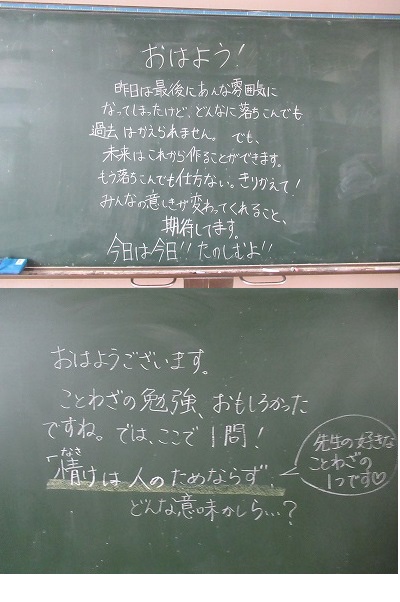 おはよう!
昨日は最後にあんな雰囲気に
なってしまったけど、どんなに落ちこんでも
過去はかえられません。でも、
未来はこれから作ることができます。
もう落ちこんでも仕方ない。きりかえて!
みんなの意しきが変わってくれること、
期待してます。
今日は今日!!たのしむよ!!
おはようございます。
ことわざの勉強、おもしろかった
ですね。では、ここで1問!
なさ
"情けは人のためならず"
どんな意味かしら…?
先生の好きな
ことわざの
1つです♡